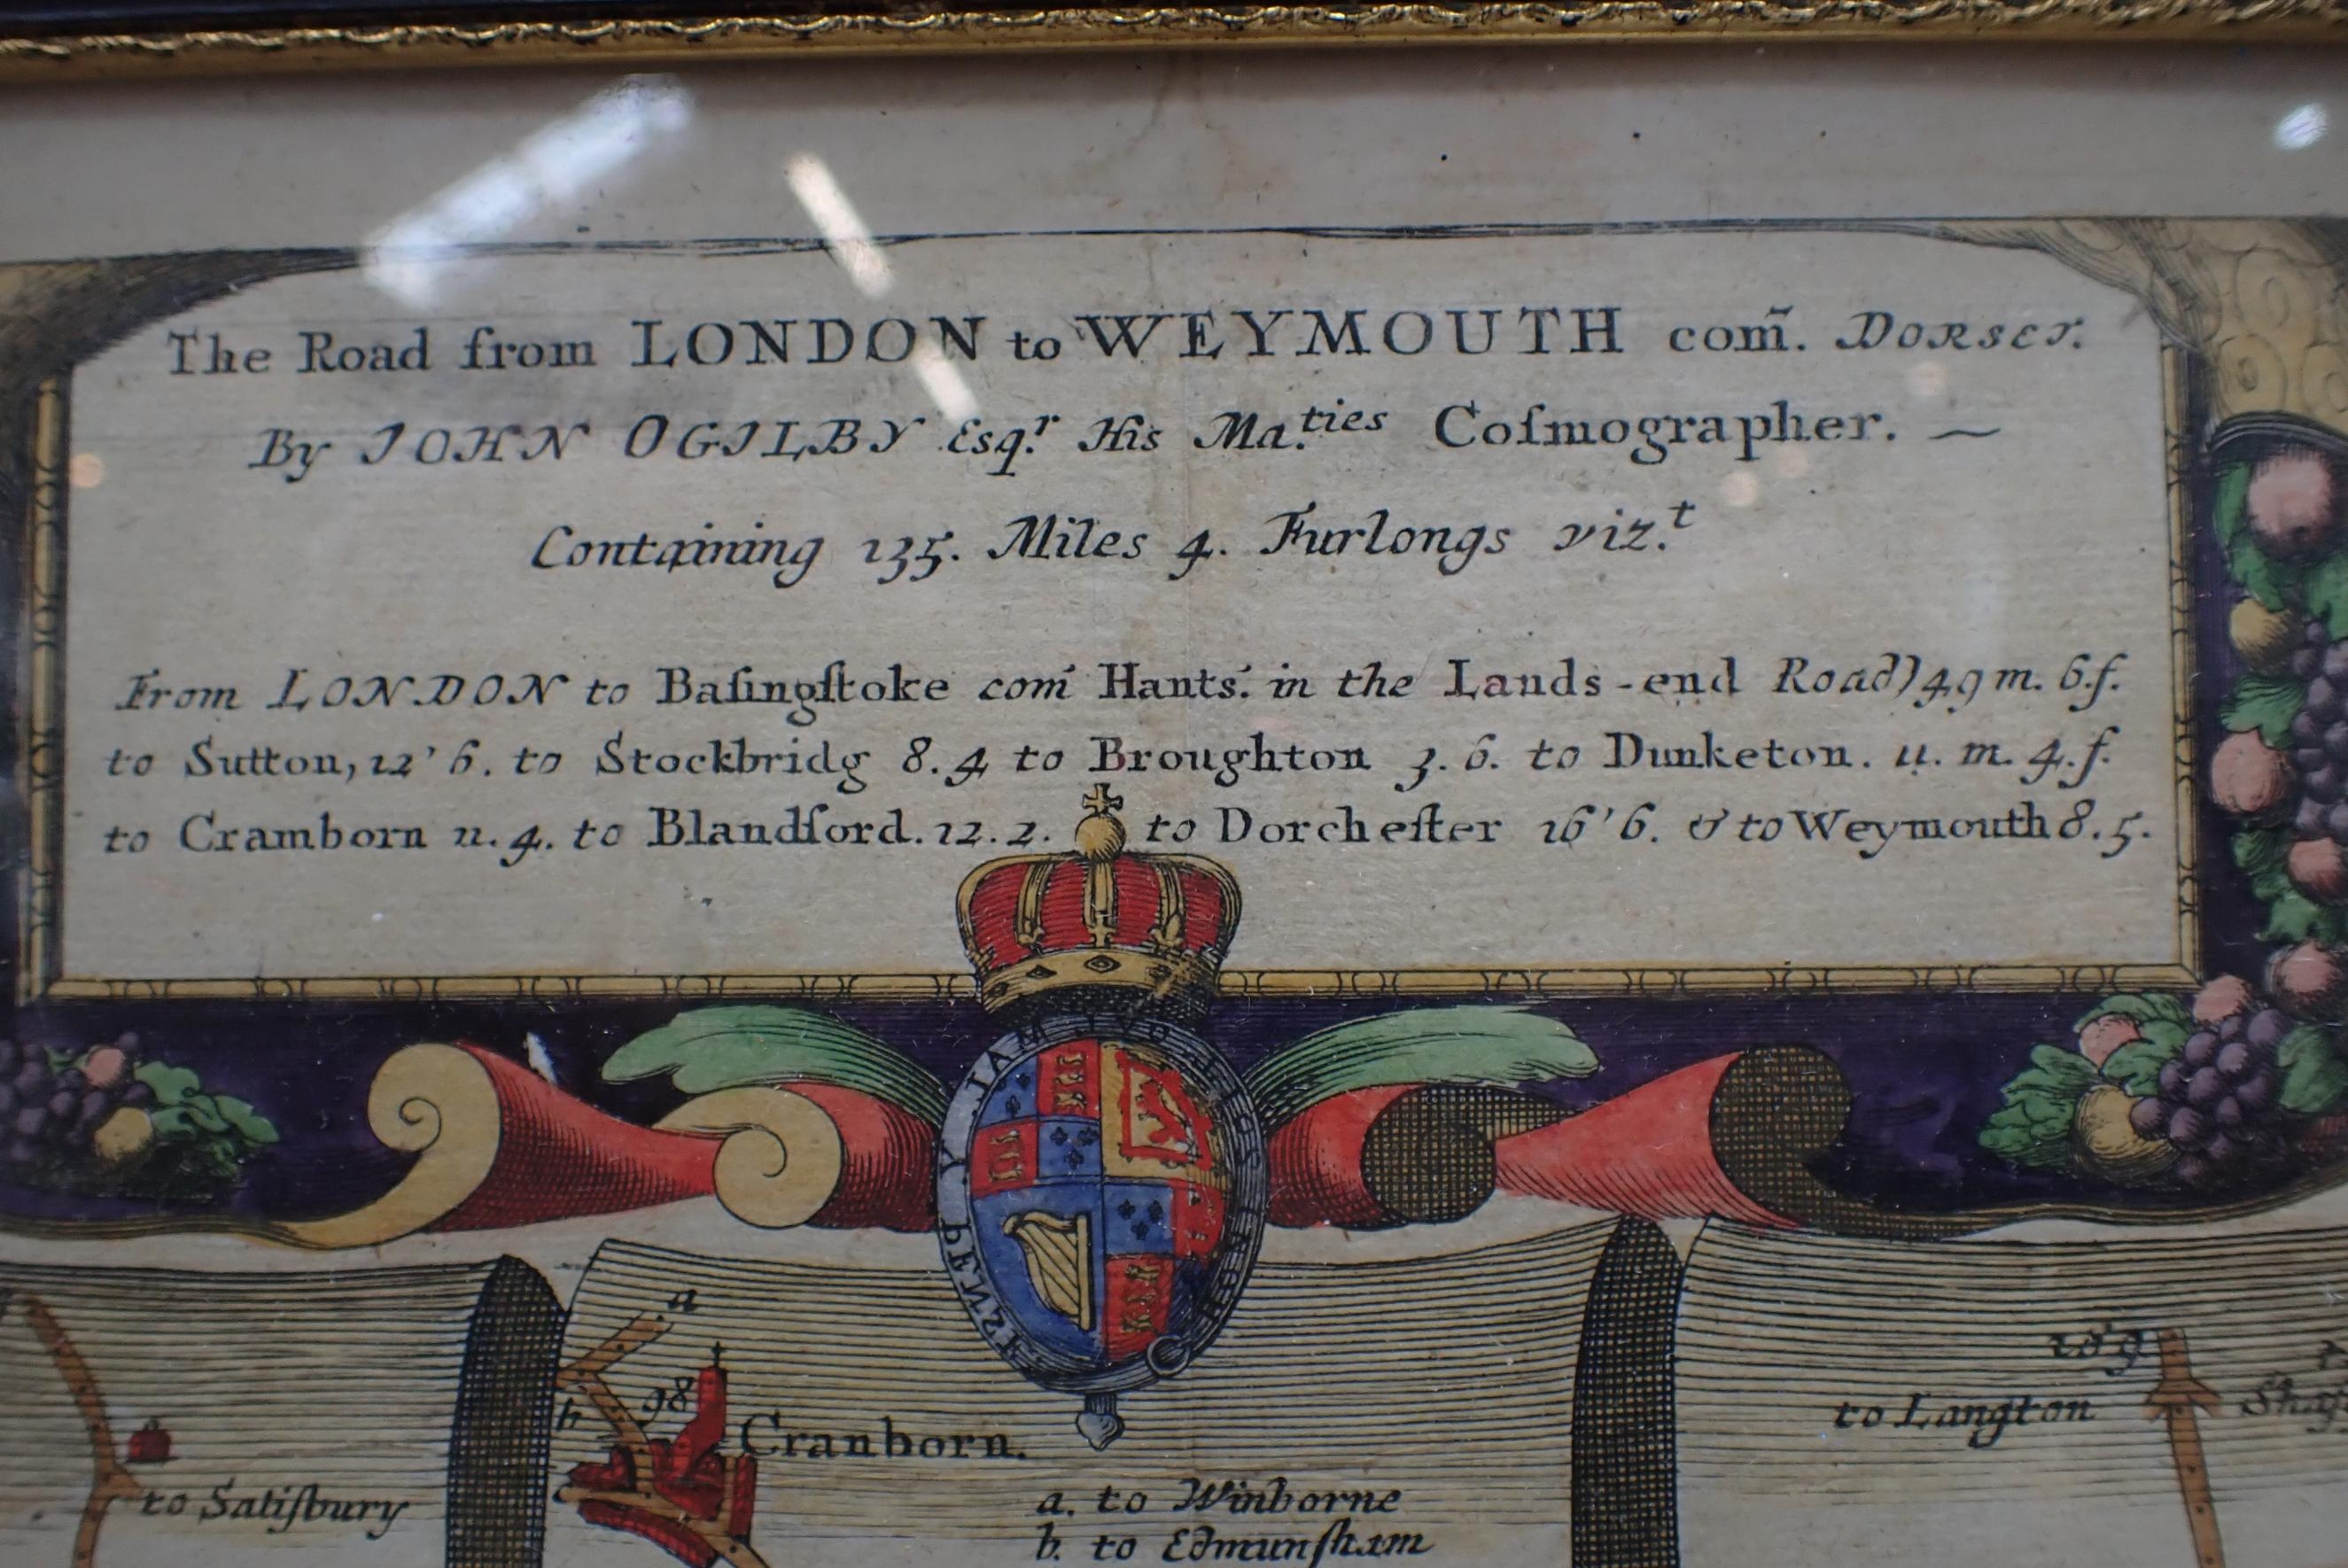 The Road from LONDON to WEYMOUTH com̃. DORSET.
By JOHN OGILBY Esqr. His Ma.ties Coſmographer. ~
Containing 135. Miles 4. Furlongs viz.t
From LONDON to Baſingſtoke com̃ Hants. in the Lands-end Road) 49 m. 6.f.
to Sutton, 12'6. to Stockbridg 8.4 to Broughton 3.6. to Dunketon. 11. m. 4.f.
to Cramborn 11.4. to Blandford. 12.2. to Dorcheſter 16'6. & to Weymouth 8.5.
a
b
98
Cranborn.
c
to Saliſbury
a. to Winborne
b. to Edmunſham
to Langton